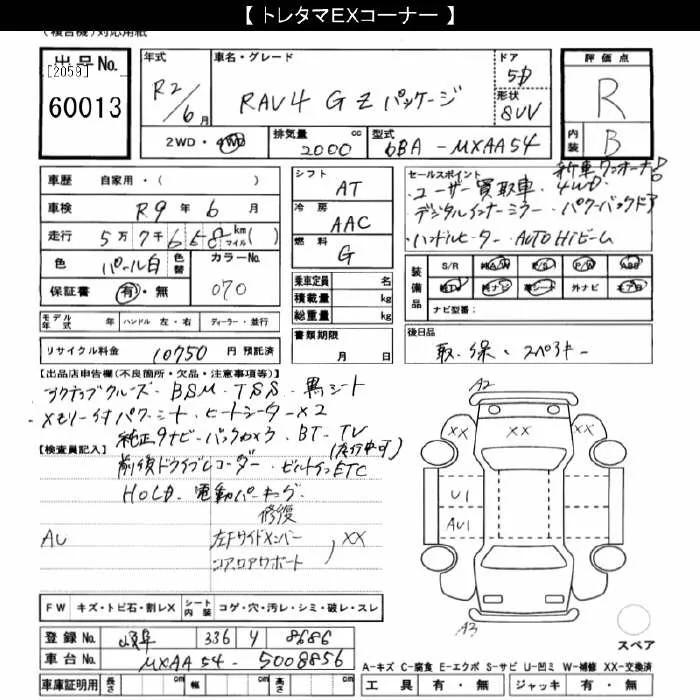 【 トレタマEXコーナー 】
(複合機)対応用紙
出品No.
[2059]
60013
年式 R2/6月
車名・グレード RAV4 G Zパッケージ
ドア 5D
形状 SUV
評価点 R
内装 B
2WD・4WD 排気量 2000 cc 型式 6BA-MXAA54
車歴 自家用・( )
車検 R9年6月
走行 5万7千658 km マイル( )
色 パール白 色替 カラーNo. 070
保証書 有・無
シフト AT
冷房 AAC
燃料 G
乗車定員 名
積載量 kg
総重量 kg
セールスポイント 新車ワンオーナー
・ユーザー買取車・4WD
・デジタルインナーミラー・パワーバックドア
・ハンドルヒーター・AUTO Hiビーム
装備品 S/R 純A/W P/S P/W ABS
純TV 純ナビ 革シート 外ナビ エアB
ナビ型番:
モデル年式 年 ハンドル 左・右 ディーラー・並行
書類期限 月 日
後日品
取・保・スペアキー
リサイクル料金 10750 円 預託済
【出品店申告欄(不良箇所・欠品・注意事項等)】
BSM・TSS・黒シート
パワーシート・ヒートシーター×2
純正9ナビ・バックカメラ・BT・TV
(走行中可)
【検査員記入】
前後ドライブレコーダー・ビルトインETC
HOLD・電動パーキング
修復
AU 左Fサイドメンバー, XX
コアロアサポート
FW キズ・トビ石・割レX シート内装 コゲ・穴・汚レ・シミ・破レ・スレ
A2
XX XX XX
U1
AU1
A3
スペア
登録No. 岐阜 336 8686
車台No. MXAA54-5008856
A-キズ C-腐食 E-エクボ S-サビ U-凹ミ W-補修 XX-交換済
車庫証明用 長さ cm 幅 cm 高さ cm
工具 有・無 ジャッキ 有・無